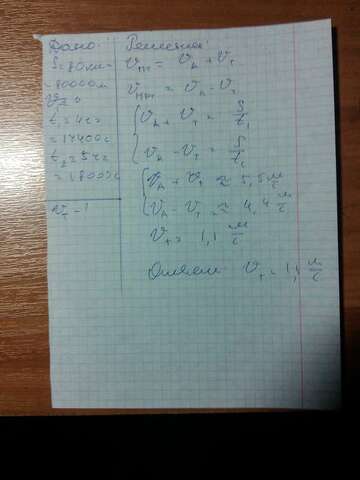 Дано:
S = 80км =
= 80000м
t₁ = 4ч =
= 14400с
t₂ = 5ч =
= 18000с
Vт - ?
Решение:
Vпт = Vк + Vт
Vпрт = Vк - Vт
{ Vк + Vт = S/t₁
Vк - Vт = S/t₂
{ Vк + Vт ≈ 5,5 м/с
Vк - Vт ≈ 4,4 м/с
Vт = 1,1 м/с
Ответ: Vт = 1,1 м/с